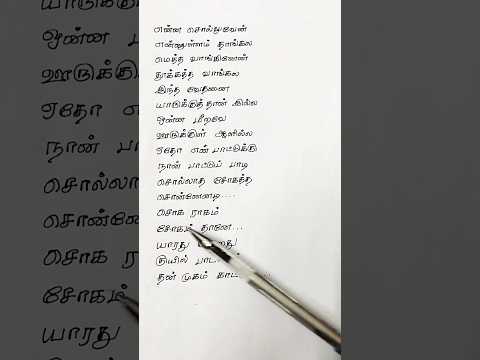 என்ன சொல்லுவேன்
என்னுள்ளம் தாங்கல
மெத்த வாங்கினேன்
தூக்கத்த வாங்கல
இந்த வேதனை
யாருக்குத்தான் இல்ல
ஒன்ன மீறவே
ஊருக்குள் ஆளில்ல
ஏதோ என் பாட்டுக்கு
நான் பாட்டுப் பாடி
சொல்லாத சோகத்த
சொன்னேனடி....
சோக ராகம்
சோகம் தானே...
யாரது
குயில் பாட
தன் முகம்